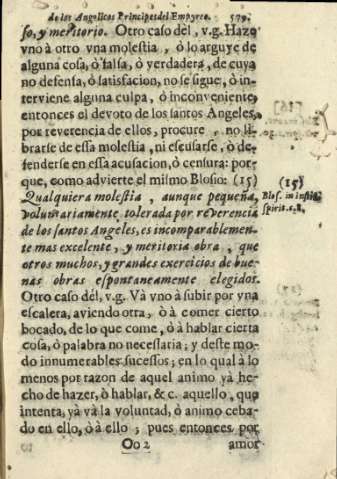 de los Angelicos Principes del Empyreo. 579.
so, y meritorio. Otro caso dèl, v.g. Haze
vno à otro vna molestia, ò lo arguye de
alguna cosa, ò falsa, ò verdadera, de cuya
no defensa, ò satisfacion, no se sigue, ò in-
terviene alguna culpa, ò inconveniente,
entonces el devoto de los santos Angeles,
por reverencia de ellos, procure, no li-
brarse de essa molestia, ni escusarse, ò de-
fenderse en essa acusacion, ò censura: por-
que, como advierte el mismo Blosio: (15)
Qualquiera molestia, aunque pequeña,
voluntariamente tolerada por reverencia
de los santos Angeles, es incomparablemen-
te mas excelente, y meritoria obra, que
otros muchos, y grandes exercicios de bue-
nas obras espontaneamente elegidos.
Otro caso dèl, v.g. Và vno à subir por vna
escalera, aviendo otra, ò à comer cierto
bocado, de lo que come, ò à hablar cierta
cosa, ò palabra no necessaria; y deste mo-
do innumerables sucessos; en lo qual à lo
menos por razon de aquel animo yà he-
cho de hazer, ò hablar, &c. aquello, que
intenta, yà và la voluntad, ò animo ceba-
do en ello, ò à ello; pues entonces por
Oo 2 amor
(15)
Blos. in instit.
spirit. c. 8.